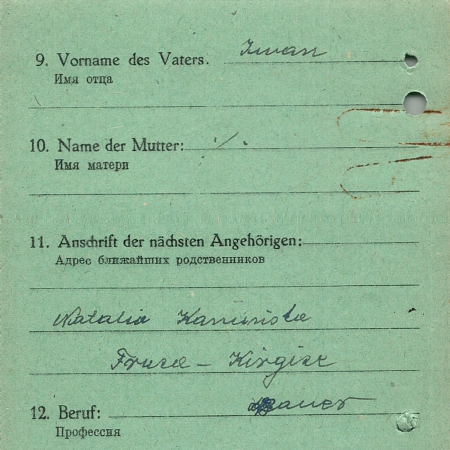 9. Vorname des Vaters. Iwan
Имя отца
10. Name der Mutter: ·/.
Имя матери
11. Anschrift der nächsten Angehörigen:
Адрес ближайших родственников
Natalia
Frusa – Kirgise
12. Beruf: Bauer
Профессия